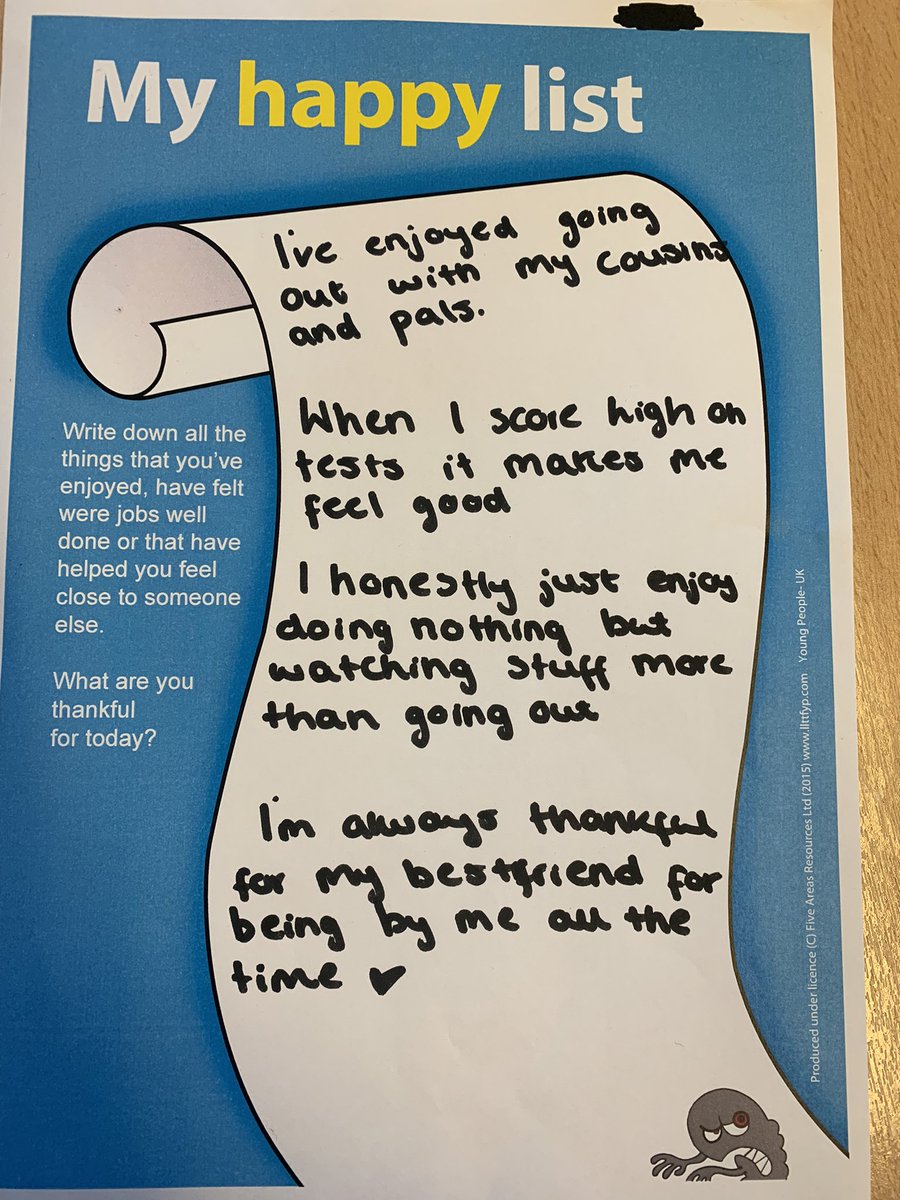 My happy list
I've enjoyed going
out with my cousins
and pals.
When I score high on
tests it makes me
feel good
I honestly just enjoy
doing nothing but
watching stuff more
than going out
I'm always thankful
for my bestfriend for
being by me all the
time
Write down all the
things that you've
enjoyed, have felt
were jobs well
done or that have
helped you feel
close to someone
else.
What are you
thankful
for today?
Produced under licence (C) Five Areas Resources Ltd (2015) www.llttfyp.com Young People- UK